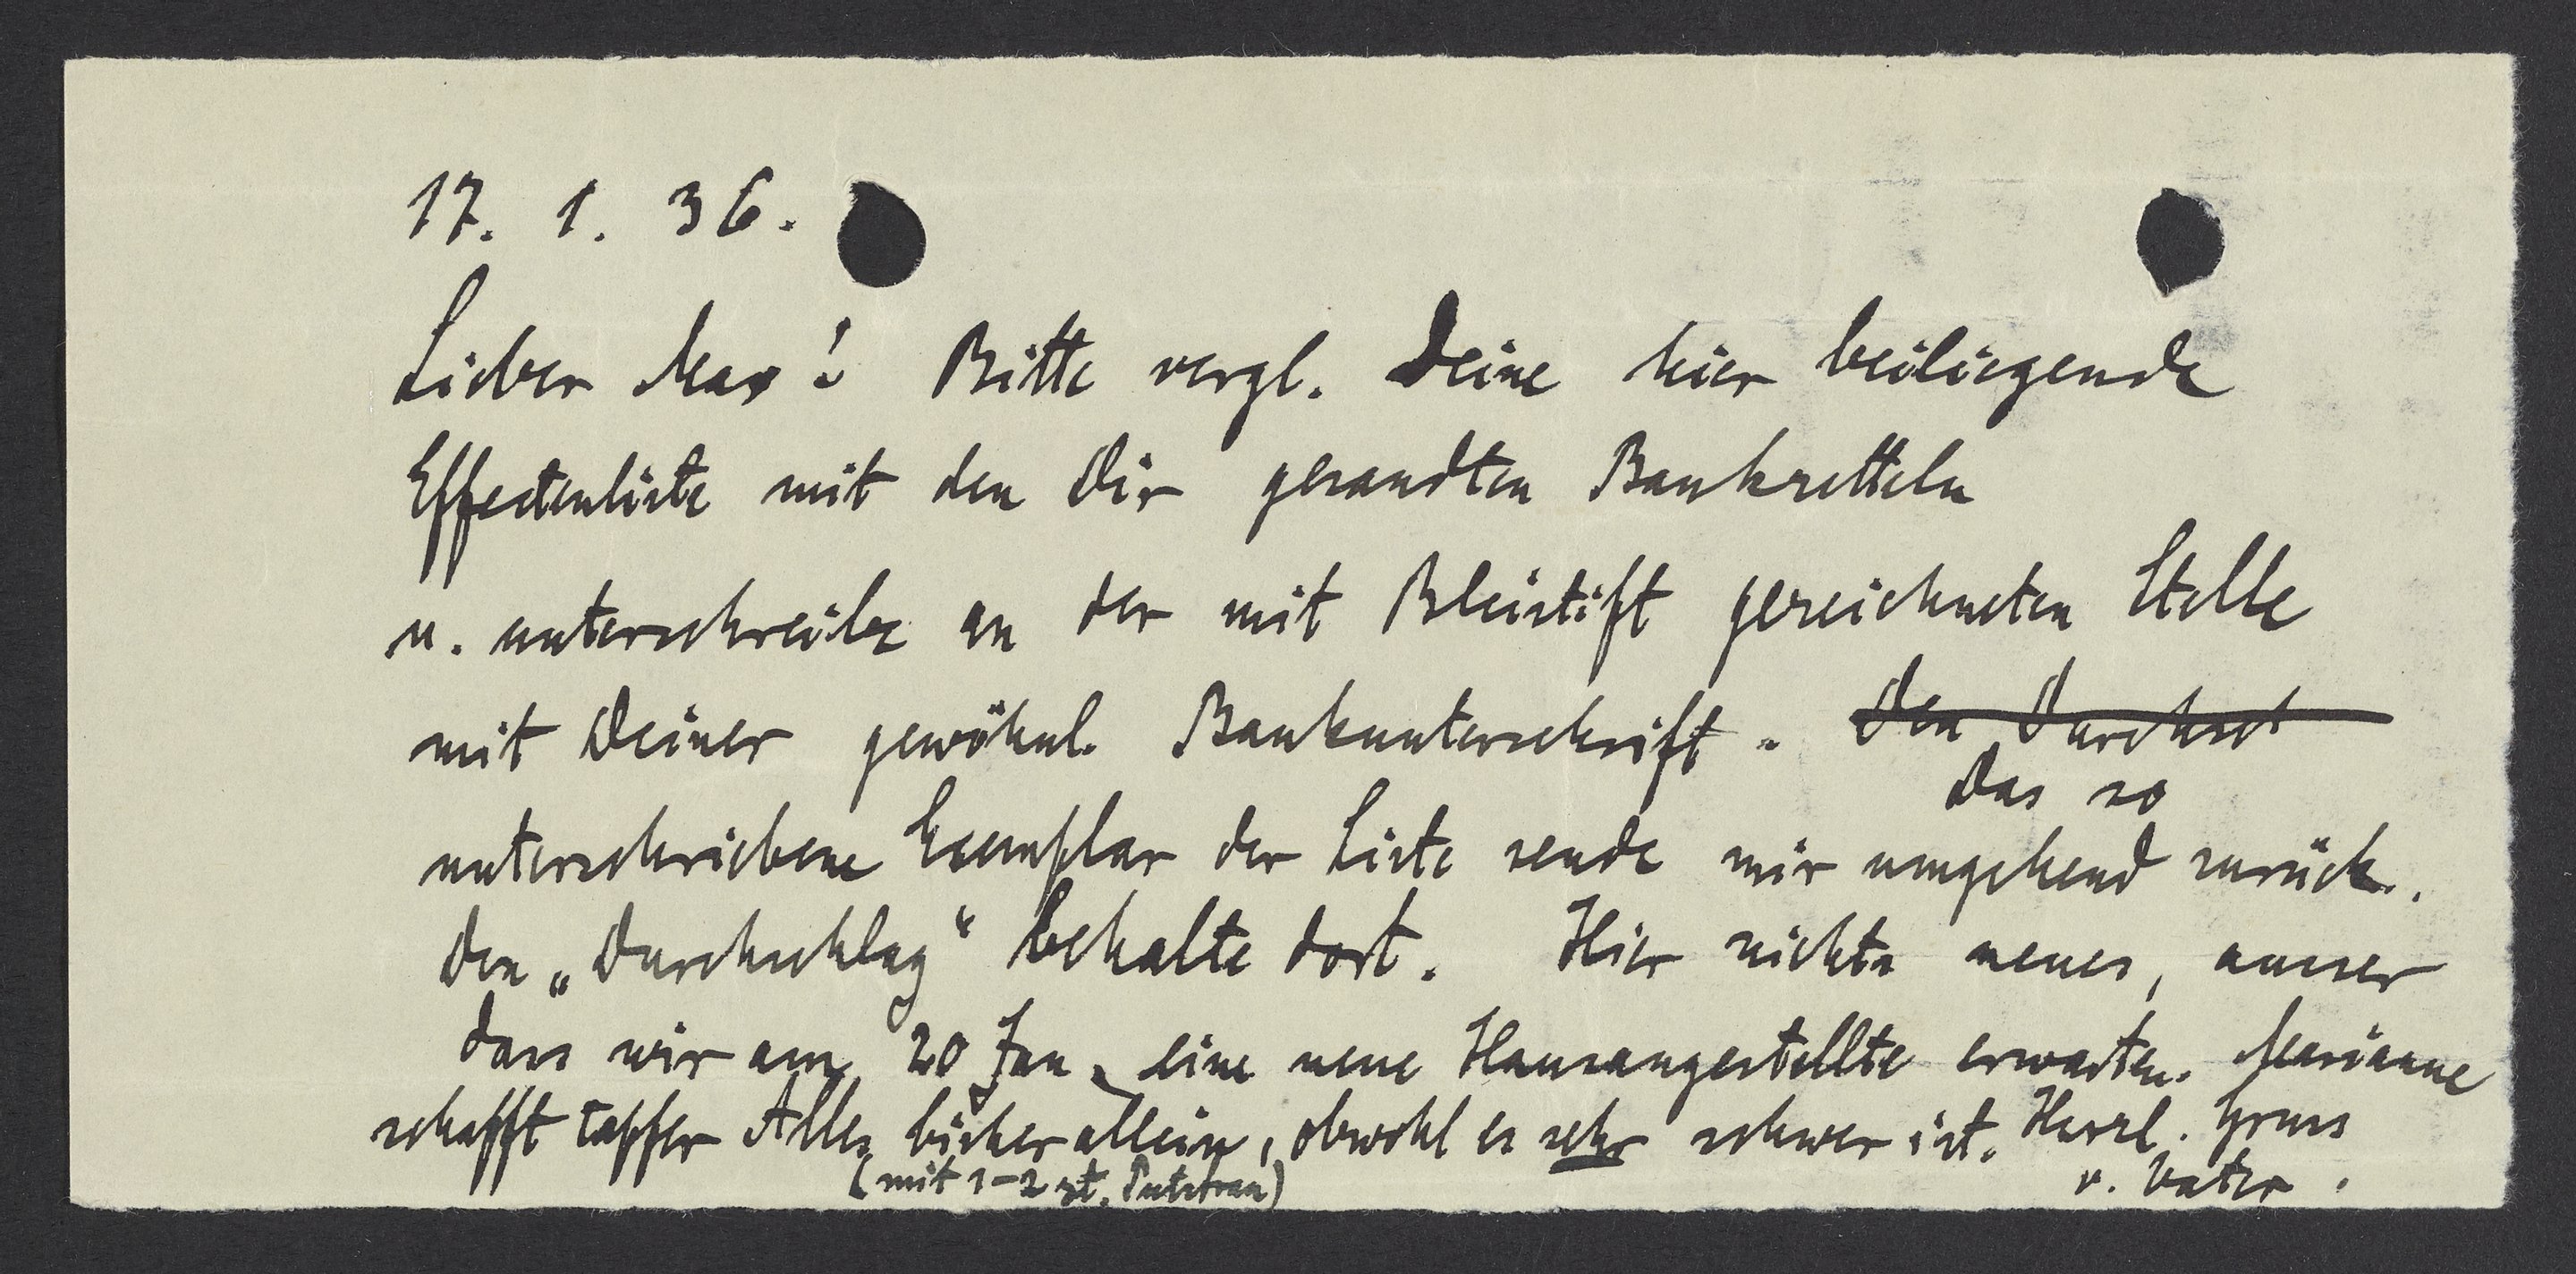 17. 1. 36.
Lieber Max! Bitte vergl. Deine hier beiliegende
Effectenliste mit den Dir gesandten Bankzetteln
u. unterschreibe an der mit Bleistift gezeichneten Stelle
mit Deiner gewöhnl. Bankunterschrift. Den Durchsch
Das so
unterschriebene Exemplar der Liste sende mir umgehend zurück.
Den „Durchschlag“ behalte dort. Hier nichts neues, ausser
dass wir am 20 Jan. eine neue Hausangestellte erwarten. Marianne
schafft tapfer Alles bisher allein, obwohl es sehr schwer ist. Herzl. Gruss
(mit 1-2 st. Putzfrau)
v. Vater.